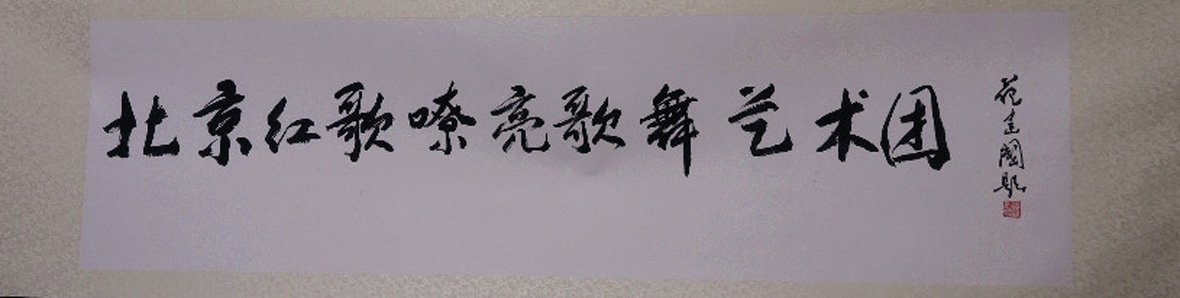 北京红歌嘹亮歌舞艺术团
范建國题